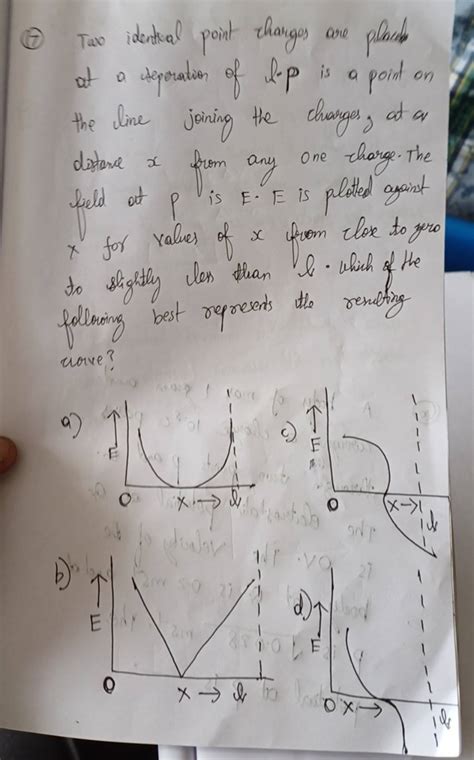 17 Two identical point charges are placed
at a seperation of l. p is a point on
the line joining the charges, at a
distance x from any one charge. The
field at p is E. E is plotted against
x for values of x from close to zero
to slightly less than l. which of the
following best represents the resulting
curve?
a) E O x → l
c) E O x → l
b) E O x → l
d) E O x →